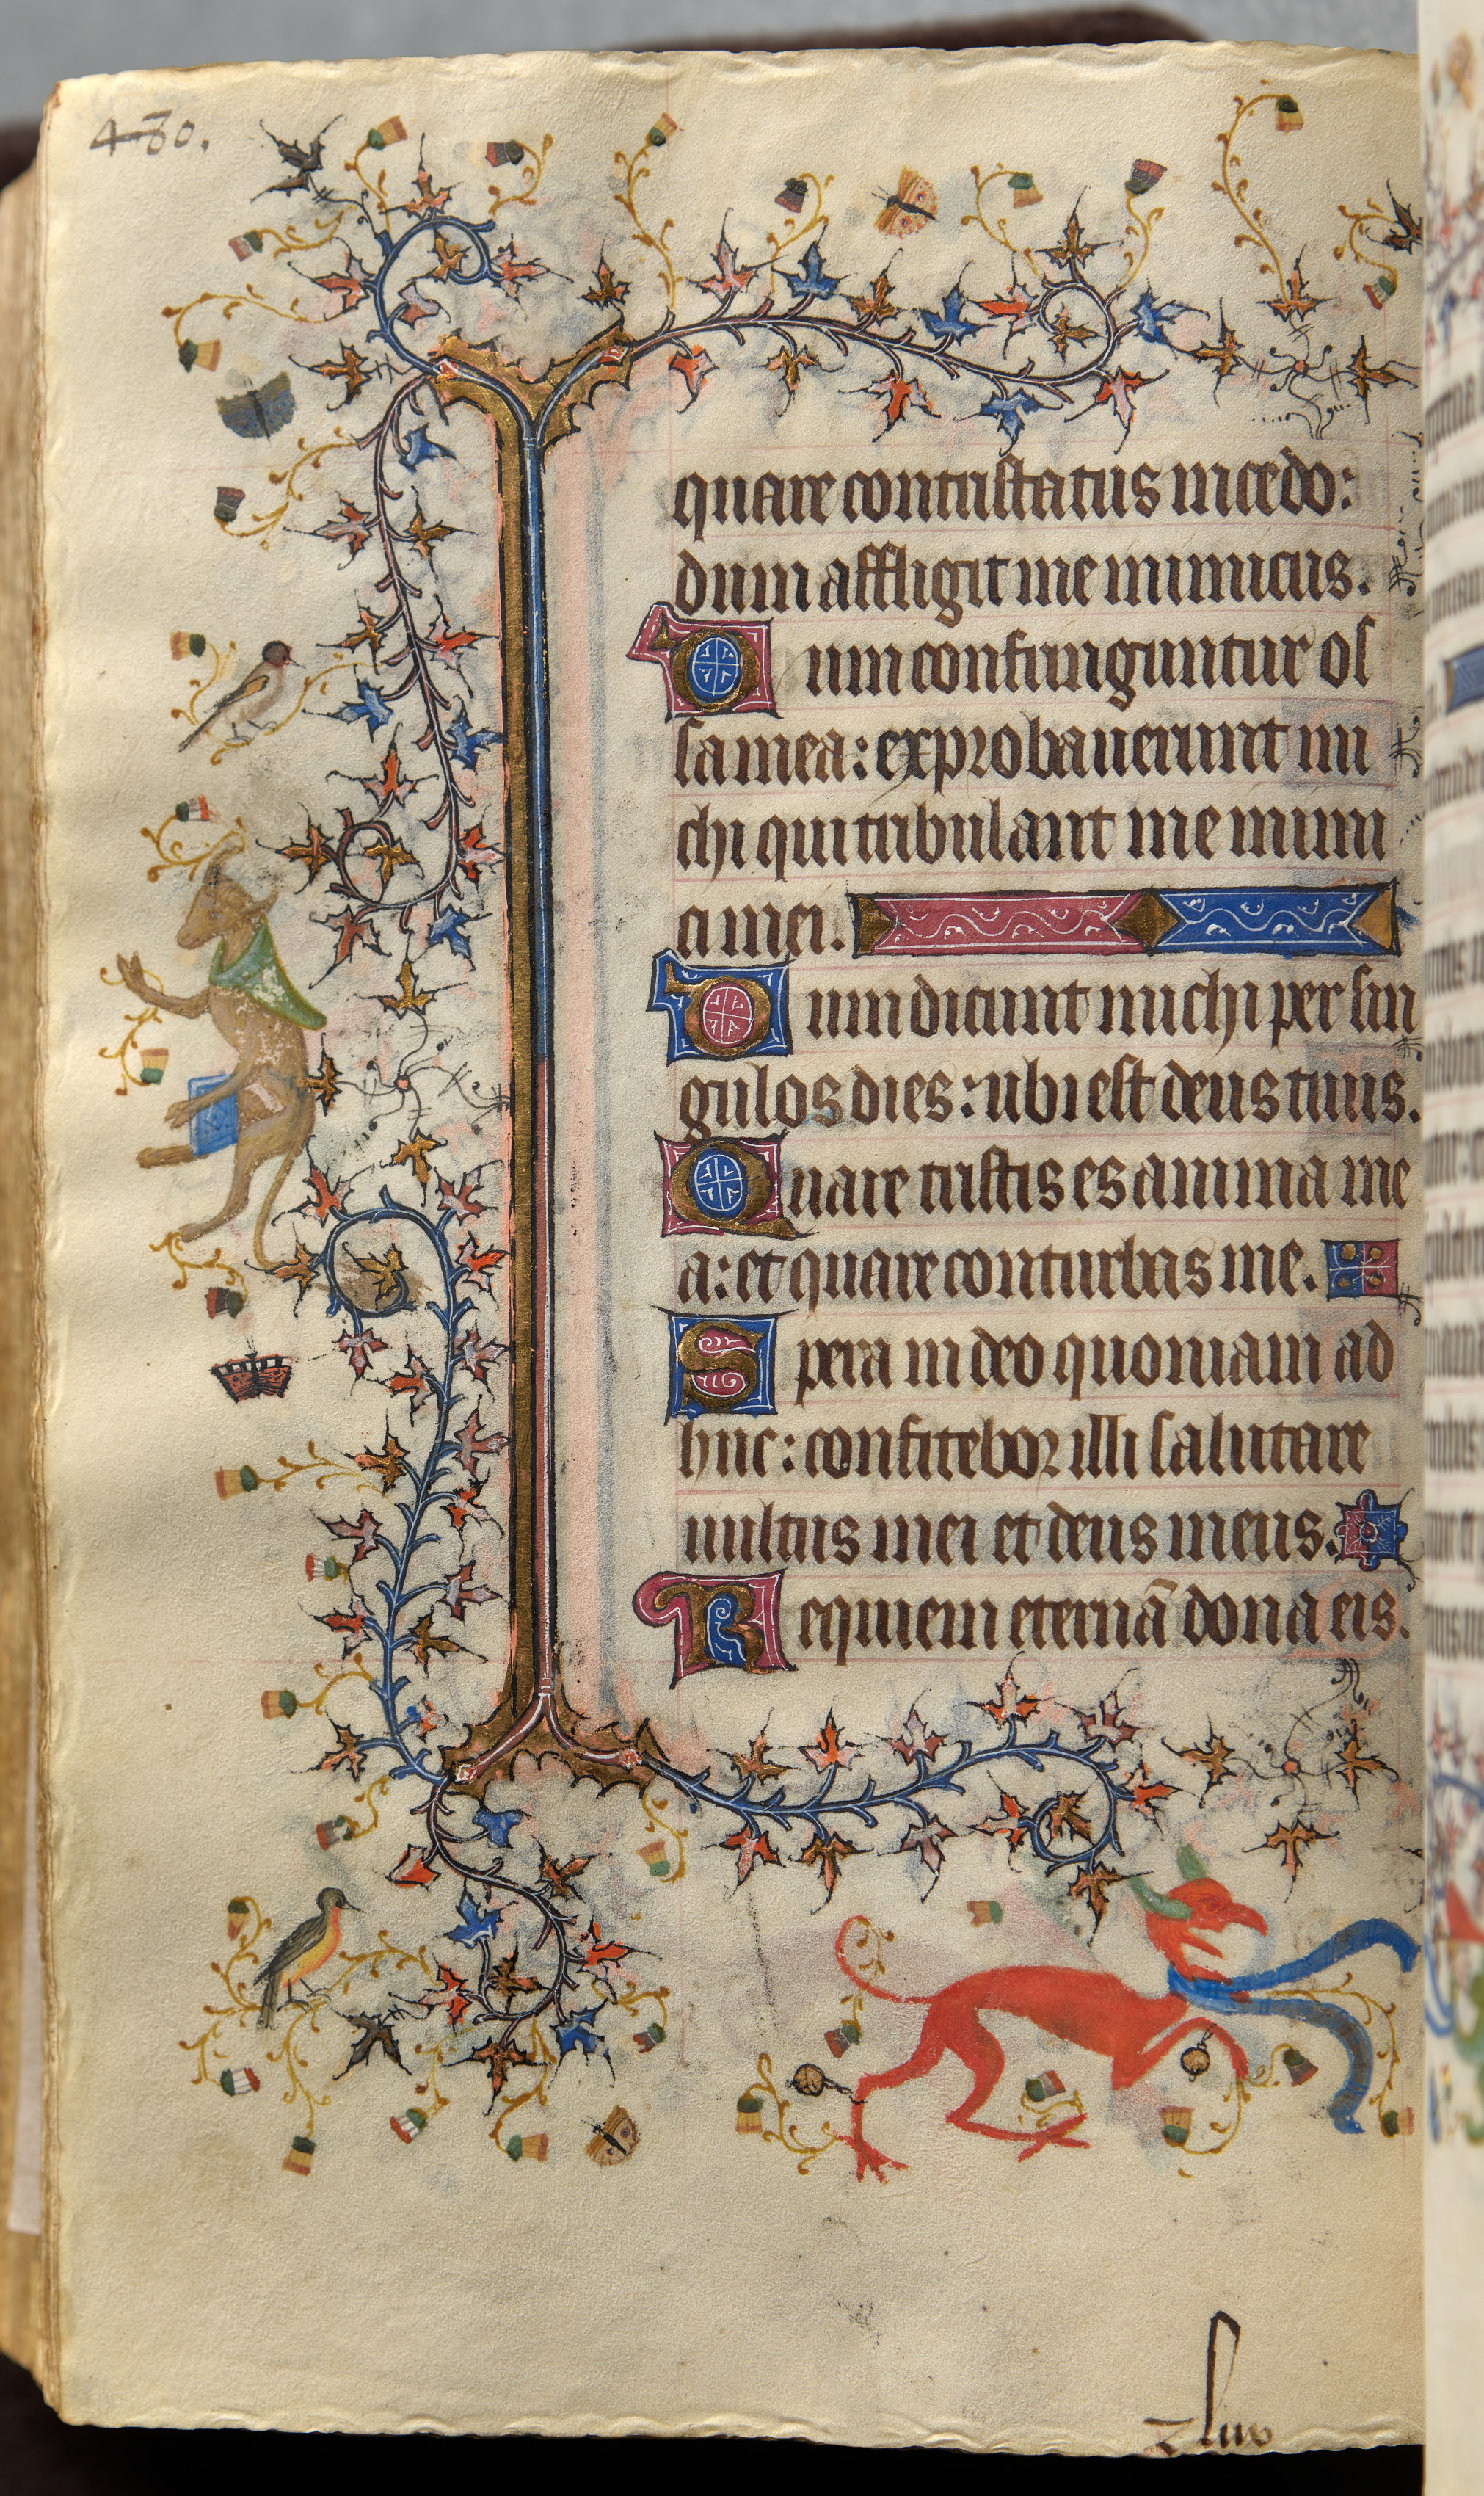 480.
quare contristatus incedo:
dum affligit me inimicus.
Dum confringuntur os
sa mea: exprobauerunt mi
chi qui tribulant me inimi
ci mei.
Dum dicunt michi per sin
gulos dies: ubi est deus tuus.
Quare tristis es anima me
a: et quare conturbas me.
Spera in deo quoniam ad
huc: confitebor illi salutare
uultus mei et deus meus.
Requiem eternā dona eis.